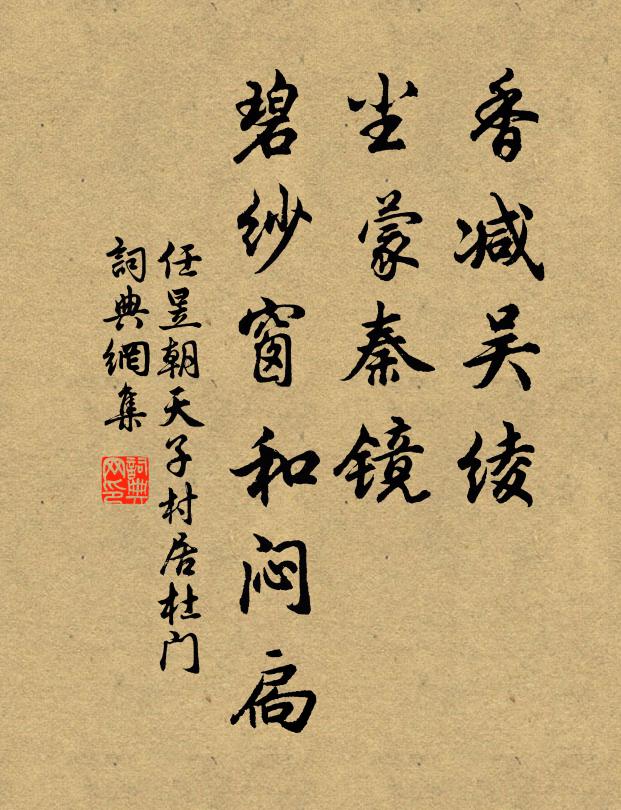 香减吴绫
尘蒙秦镜
碧纱窗和闷扃
任昱朝天子村居杜门
詞典網集
詞典网印